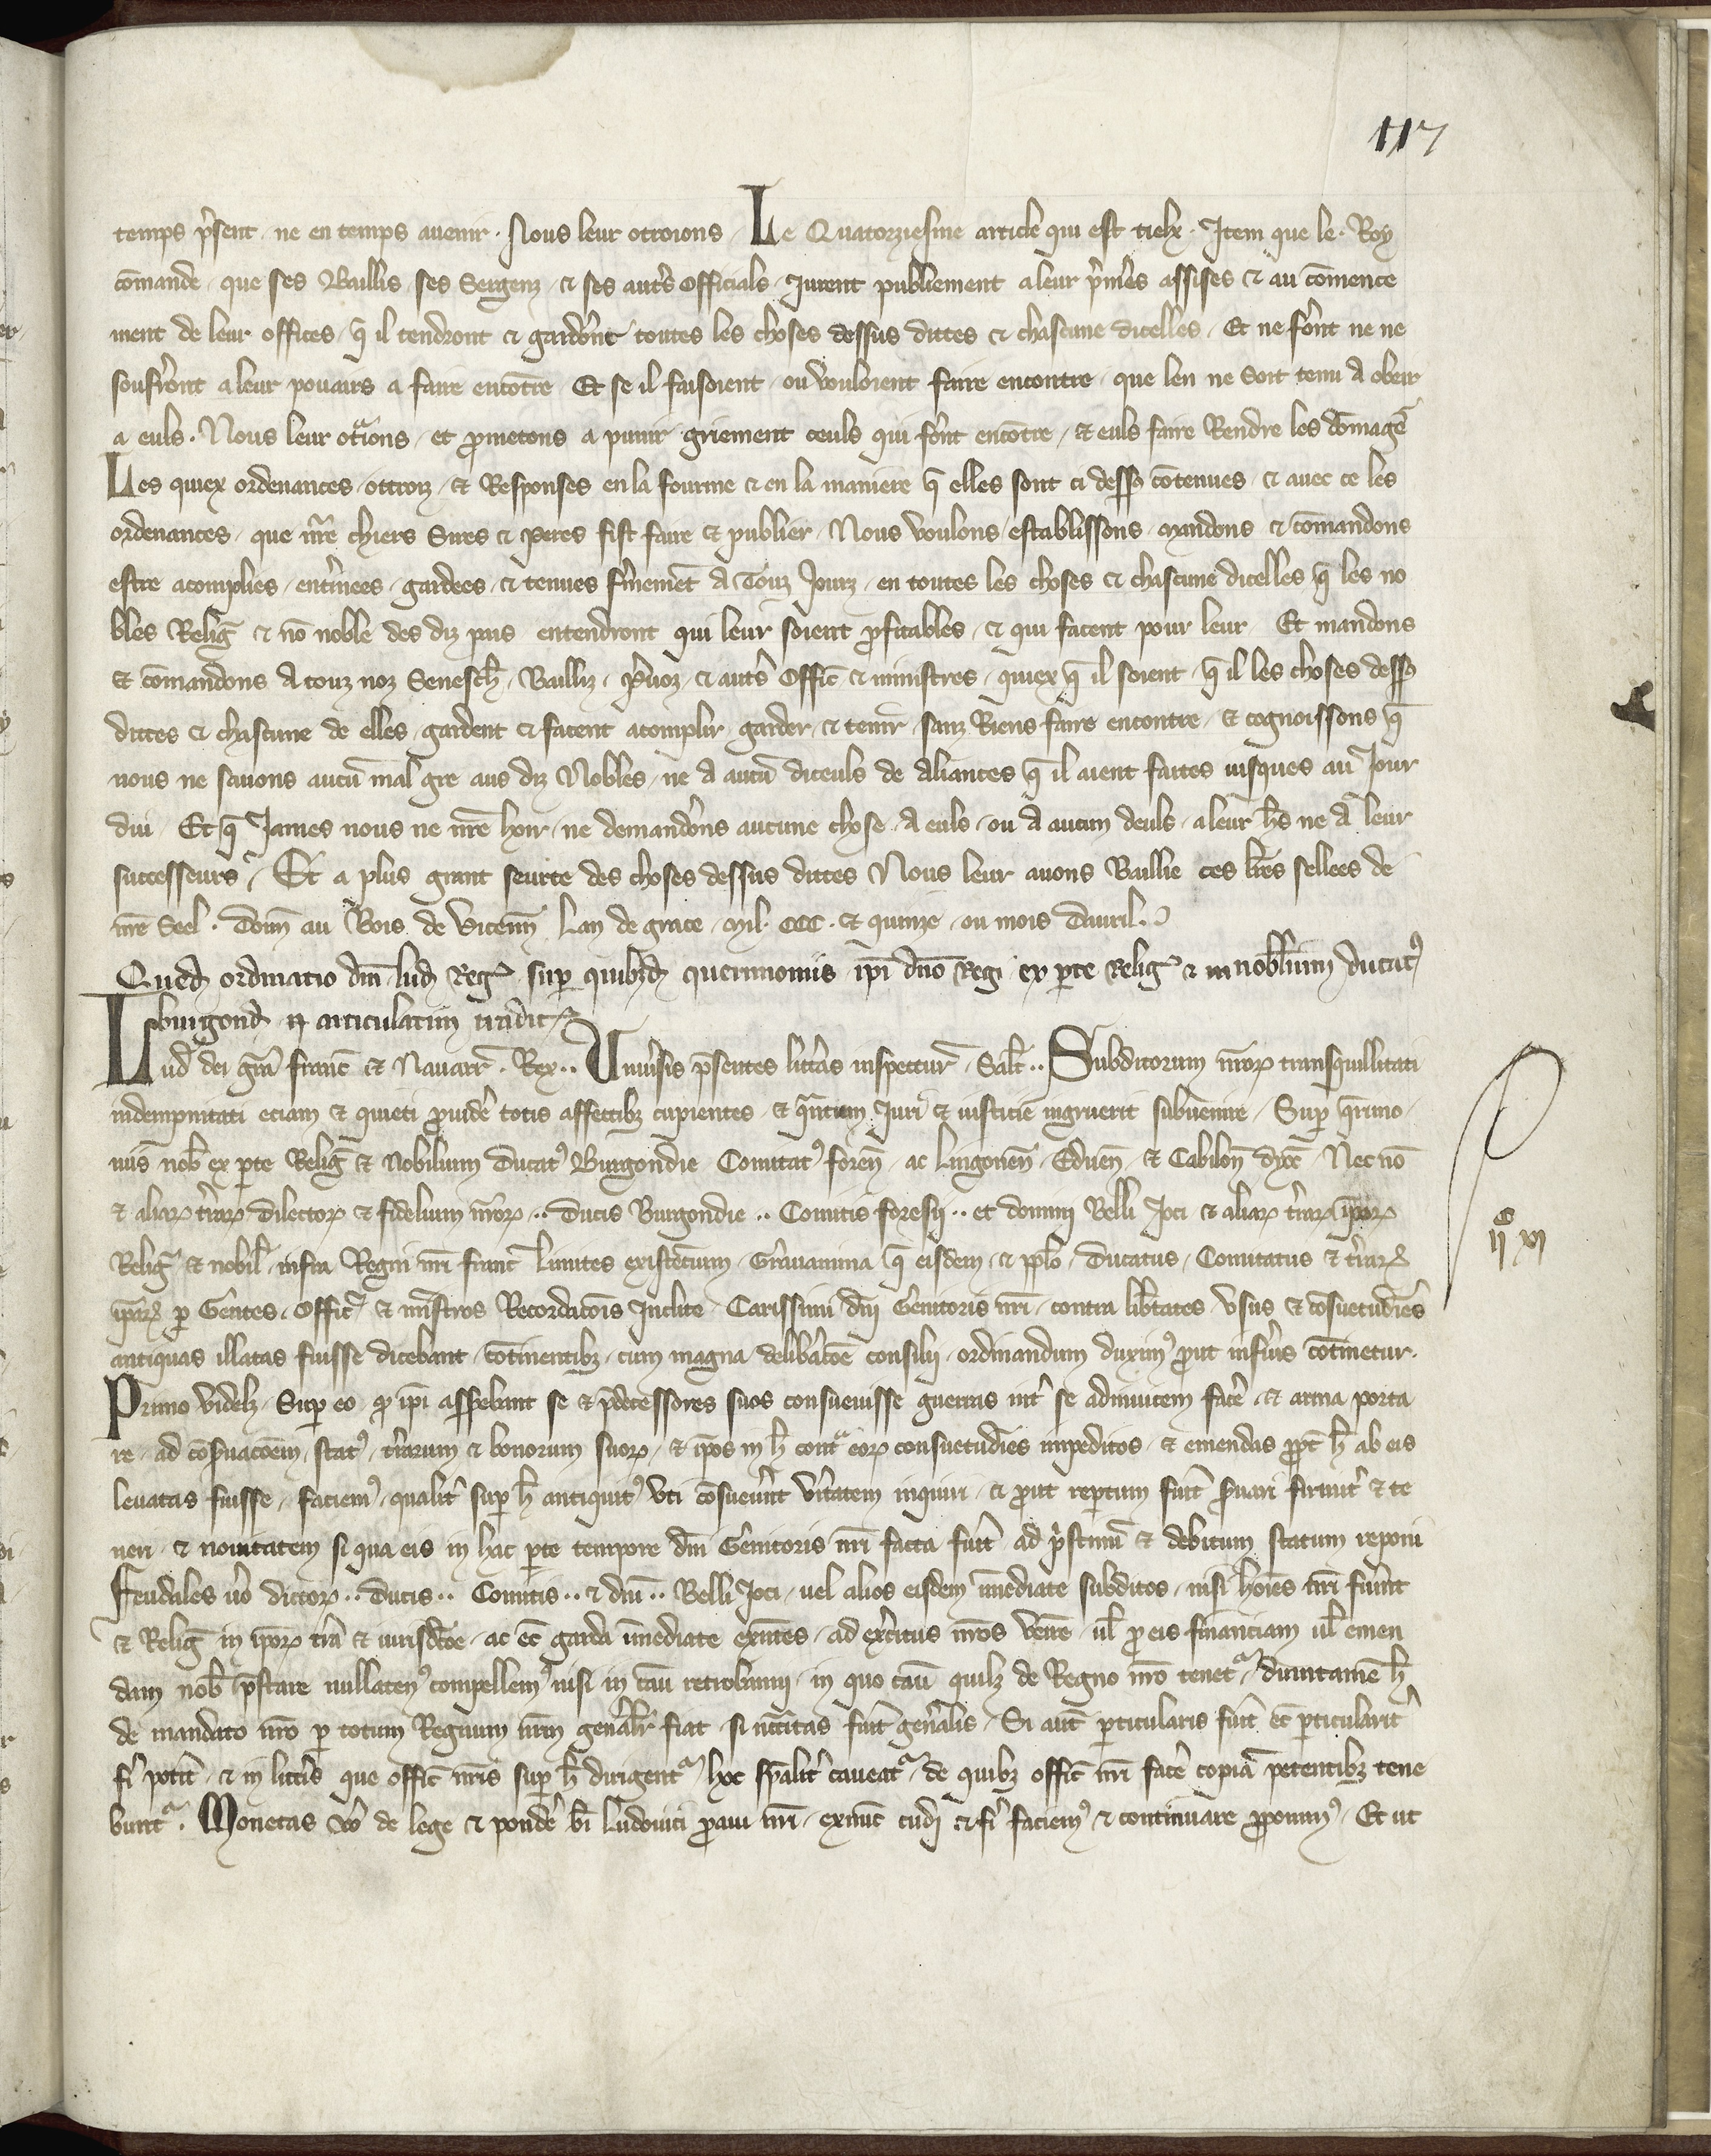 117
temps p̾sent ne en temps auenir . Nous leur ottroions . Le Quatorziesme article qui est tielx . Item que le Roy
cōmande que ses Baillis ses Sergenz & ses aut̾s Officials Jurent publiement a leur p̾m̾es assises & au cōmence
ment de leur offices q̄ il tendront & gard̾ont toutes les choses dessus dittes & chascune dicelles . Et ne f̾ont ne ne
soufr̾ont a leur pouairs a faire encōtre Et se il faisoient ou vouloient faire encontre que len ne soit tenu a obeir
a euls . Nous leur ot̾ions et p̱metons a punir griement ceuls qui f̾ont encōtre & euls faire Rendre les dōmage᷑
Les quiex ordenances ottroiz & Responses en la fourme & en la maniere q̄ elles sont ci dess᷒ cōtenues & auec ce les
ordenances que nr̃e chiers Sires & Peres fist faire & publier Nous voulons establissons mandons & cōmandons
estre acomplies ent̾inees gardees & tenues f̾memēt a Touz Jourz en toutes les choses & chascune dicelles q̄ les no
bles Relig̃ & nō noble des diz pais entendront qui leur soient ꝓfitables & qui facent pour leur Et mandons
& cōmandons a touz noz Senesch̃ Bailliz . P̾uoz & aut̾s Offic̃ & ministres quiex q̄ il soient q̄ il les choses dess᷒
dittes & chascune de elles gardent & facent acomplir garder & tenir sanz Riens faire encontre & cognoissons q̄
nous ne sauons aucū mal gre aus diz Nobles ne a aucū diceuls de aliances q̄ il aient faites iusques au Jour
dui Et q̄ James nous ne nr̃e hoir ne demand̾ons aucune chose a euls ou a aucun deuls a leur h̾s ne a leur
successeurs Et a plus grant seurte des choses dessus dittes Nous leur auons Baillie ces lr̃es sellees de
nr̃e Seel . Donn̄ au Bois de Vicenn̄ Lan de grace mil CCC . & quinze ou mois Dauril .
Qued̃ ordinatio dn̄i lud̃ Reg᷑ sup̱ quibzd̃ querimoniis ip̄i dn̄o Regi ex p̱te Relig᷑ & in nobiliū ducat᷒
burgond̃ articulatim tradit᷑
Lud̃ dei gr̃a franc̃ & Nauarr̃ . Rex .. Vniu̾sis p̄sentes litt̾as inspectur̃ Salt̃ .. Subditorum nr̃oꝝ transquillitati
indempnitati eciam & quieti ꝓuid̾e totis affectibz cupientes & q̾ntum Juri & iusticie ingruerit subuenire . Sup̱ q̾rimo
niis nob̃ ex p̱te Relig̃ & Nobilium ducat᷒ Burgondie Comitat᷒ foren̄ ac lingonen̄ Eduen̄ & Cabilon̄ dyoc̃ Nec nō
& aliaꝝ t̾raꝝ dilectoꝝ & fidelium nr̃oꝝ .. Ducis Burgondie .. Comitis foresij .. et domini Belli Joci & aliaꝝ t̾raꝝ ip̄oꝝ
Relig̃ & nobil̃ infra Regni nr̃i franc̃ limites existēcium Grauamina q̄ eisdem & pp̄lo Ducatus Comitatus & t̾raꝝ
ip̄aꝝ p̱ Gentes Offic̃ & m̃istros Recordac̃ois Inclite Carissimi dn̄i Genitoris nr̃i contra lib̃tates vsus & cōsuetudīes
antiquas illatas fuisse dicebant cōtinentibz cum magna delib̾ac̃oe consilij ordinandum duxim᷒ ꝓut inf̾ius cōtinetur .
Primo videlz̃ Sup̱ eo ꝙ ip̄i ass̾ebant se & p̄decessores suos consueuisse guerras int̾ se adinuicem fac̾e & arma porta
re ad cōs̾uac̃oem stat᷒ t̾rarum & bonorum suoꝝ & ip̄os in h̃ cont̾ eoꝝ consuetudīes impeditos & emendas ꝓpt̃ h̃ ab eis
leuatas fuisse faciem᷒ qualit̾ sup̱ h̃ antiquit᷒ vti cōsueu̾nt v̾itatem inquiri & ꝓut rep̱tum fu̾it s̾uari firmit̾ & te
neri & nouitatem si qua eis in hac p̱te tempore dn̄i Genitoris nr̃i facta fu̾it ad p̾stinū & debitum statum reponi
Feudales v̾o dictoꝝ .. Ducis .. Comitis .. & dn̄i .. Belli Joci uel alios eisdem īmediate subditos nisi hōies nr̃i fu̾int
& Relig̃ in ip̄oꝝ t̾ra & iurisdc̃oe ac ec̃ garda īmediate exn̄tes ad ex̾citus nr̃os venire ul̃ ꝓ eis financiam ul̃ emen
dam nob̃ p̾stare nullaten᷒ compellem᷒ nisi in casū retrobanni in quo casū quilz de Regno nr̃o tenet᷑ dumtamē h̃
de mandato nr̃o p̱ totum Regnum nr̃m gen̾alit̾ fiat si nc̃c̃itas fu̾it gen̾alis . Si aut̃ p̱ticularis fu̾it ec̃ p̱ticularit̾
fi̾ pot̾it & in litt̾is que offic̃ nr̃is sup̱ h̃ dirigent᷑ hoc sp̄alit̾ caueat᷑ de quibz offic̃ nr̃i fac̾e copiā petentibz tene
bunt᷑ . Monetas v̾o de lege & pond̾e bī Ludouici ꝓaui nr̃i exnunc cudi & fi̾ faciem᷒ & continuare ꝓponim᷒ . Et ut